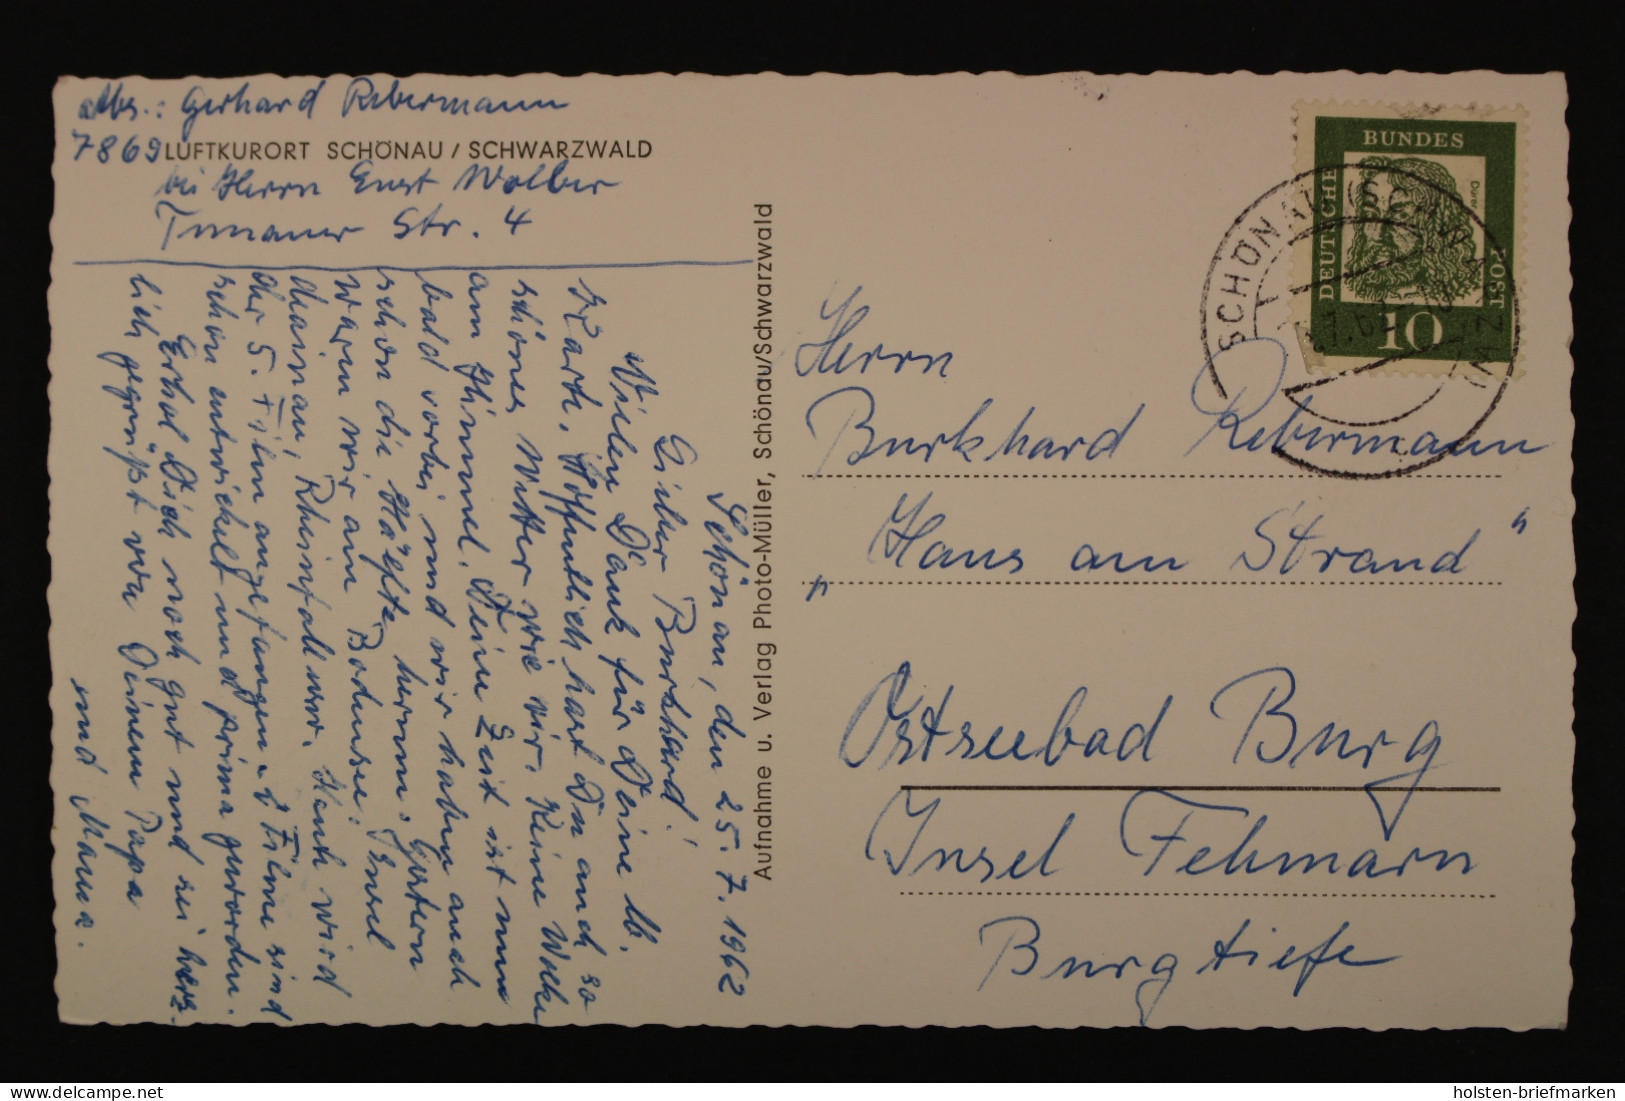 Abs.: Gerhard Rebermann
7869 LUFTKURORT SCHÖNAU / SCHWARZWALD
bei Herrn Ernst Wolber
Tunauer Str. 4
Schönau, den 25.7.1962
Lieber Burkhard!
Vielen Dank für Deine lb.
Karte. Hoffentlich hast Du auch so
schönes Wetter wie wir. Keine Wolke
am Himmel. Deine Zeit ist nun
bald vorbei und wir haben auch
schon die Hälfte herum. Gestern
waren wir am Bodensee: Insel
Mainau, Rheinfall usw. Heute wird
der 5. Film angefangen. 2 Filme sind
schon entwickelt und prima geworden.
Erhol Dich noch gut und sei herz-
lich gegrüßt von Deinem Papa
und Mama.
Aufnahme u. Verlag Photo-Müller, Schönau/Schwarzwald
DEUTSCHE BUNDESPOST
Dürer
10
SCHÖNAU (SCHWARZW)
Herrn
Burkhard Rebermann
„Haus am Strand“
Ostseebad Burg
Insel Fehmarn
Burgtiefe
www.delcampe.net
holsten-briefmarken